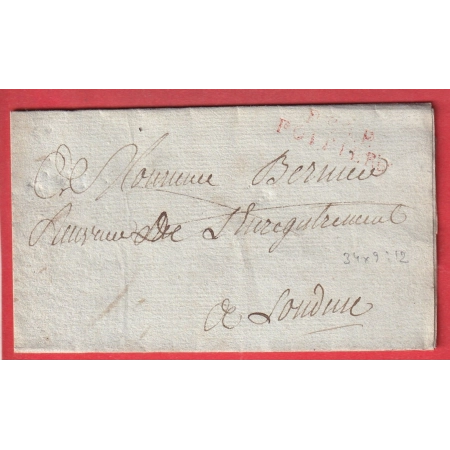 POITIERS
A Monsieur Bernier
Receveur De L'Enregistrement
34x9:12
a Loudun